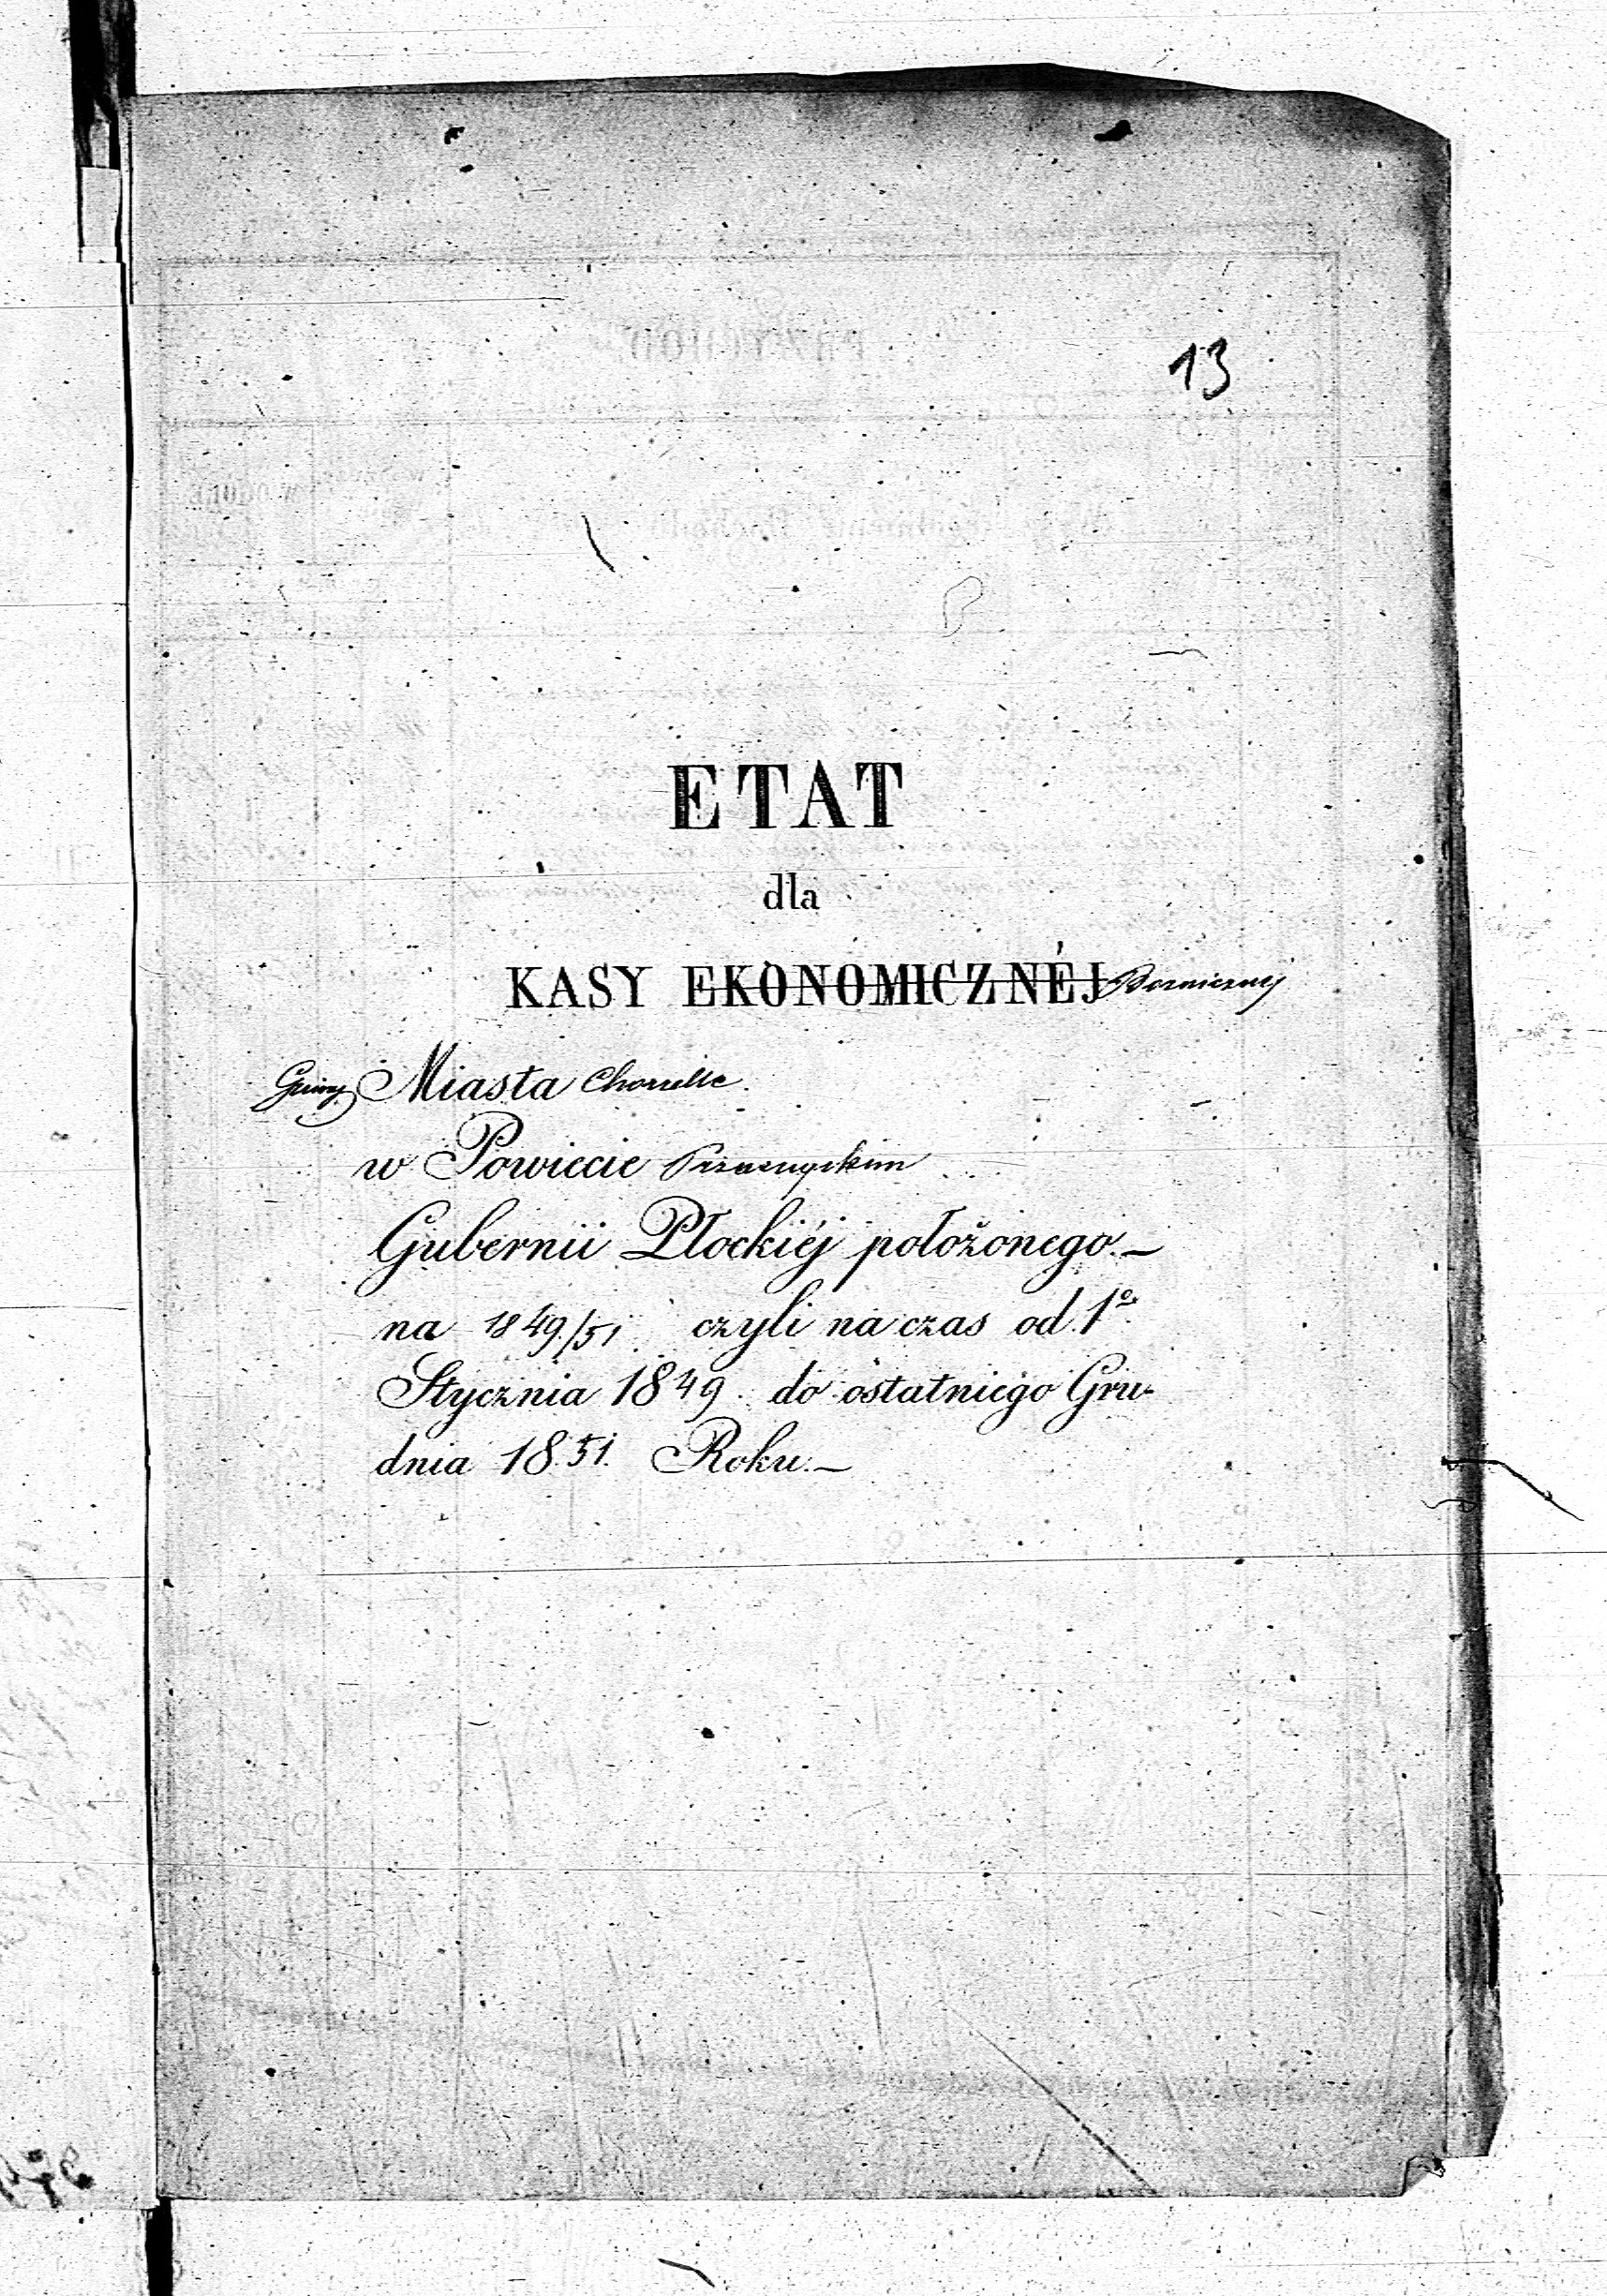 13
ETAT
dla
KASY EKONOMICZNÉJ Bożniczney
Gminy Miasta Chorzelle.
w Powiecie Przasnyskim
Gubernii Płockiéj położonego.—
na 1849/51 czyli na czas od 1º
Stycznia 1849. do ostatniego Gru-
dnia 1851. Roku.—